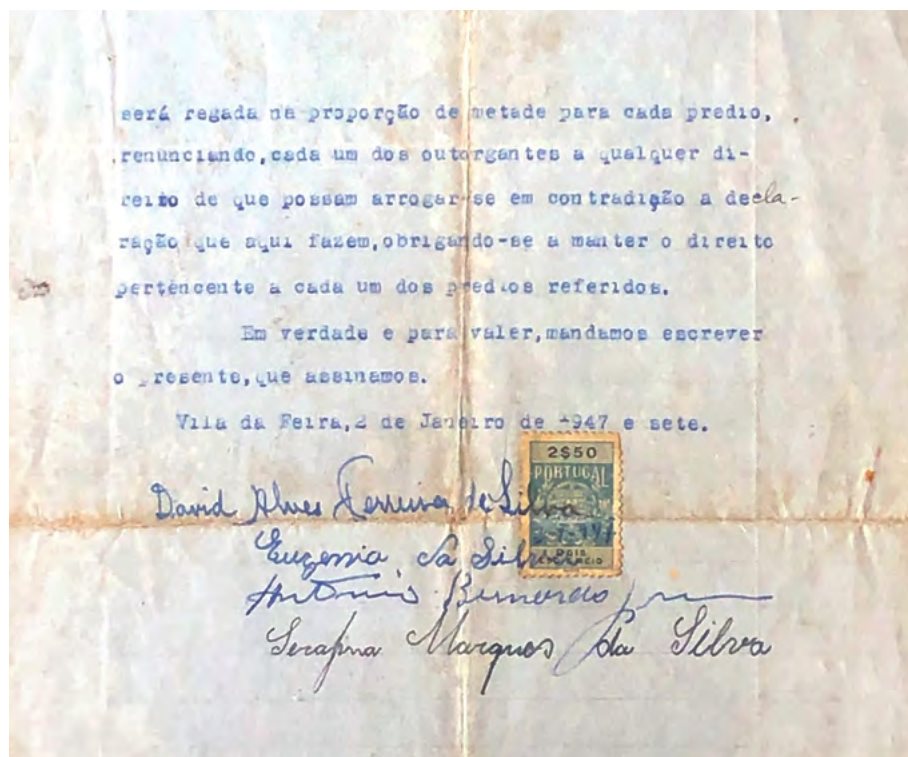 será regada na proporção de metade para cada predio,
renunciando,cada um dos outorgantes a qualquer di-
reito de que possam arrogar-se em contradição a decla-
ração que aqui fazem,obrigando-se a manter o direito
pertencente a cada um dos predios referidos.
Em verdade e para valer,mandamos escrever
o presente,que assinamos.
Vila da Feira,2 de Janeiro de 1947 e sete.
2$50
PORTUGAL
David Alves Ferreira da Silva
Eugenia da Silva
DOIS
ESCUDOS
António Bernardo
Serafina Marques da Silva